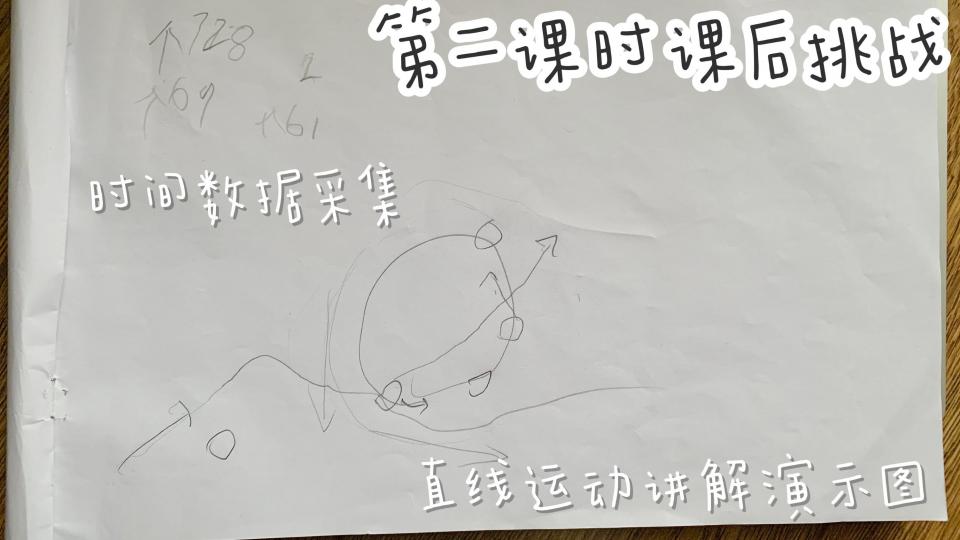 第二课时课后挑战
个728
个69
2
个61
时间数据采集
直线运动讲解演示图